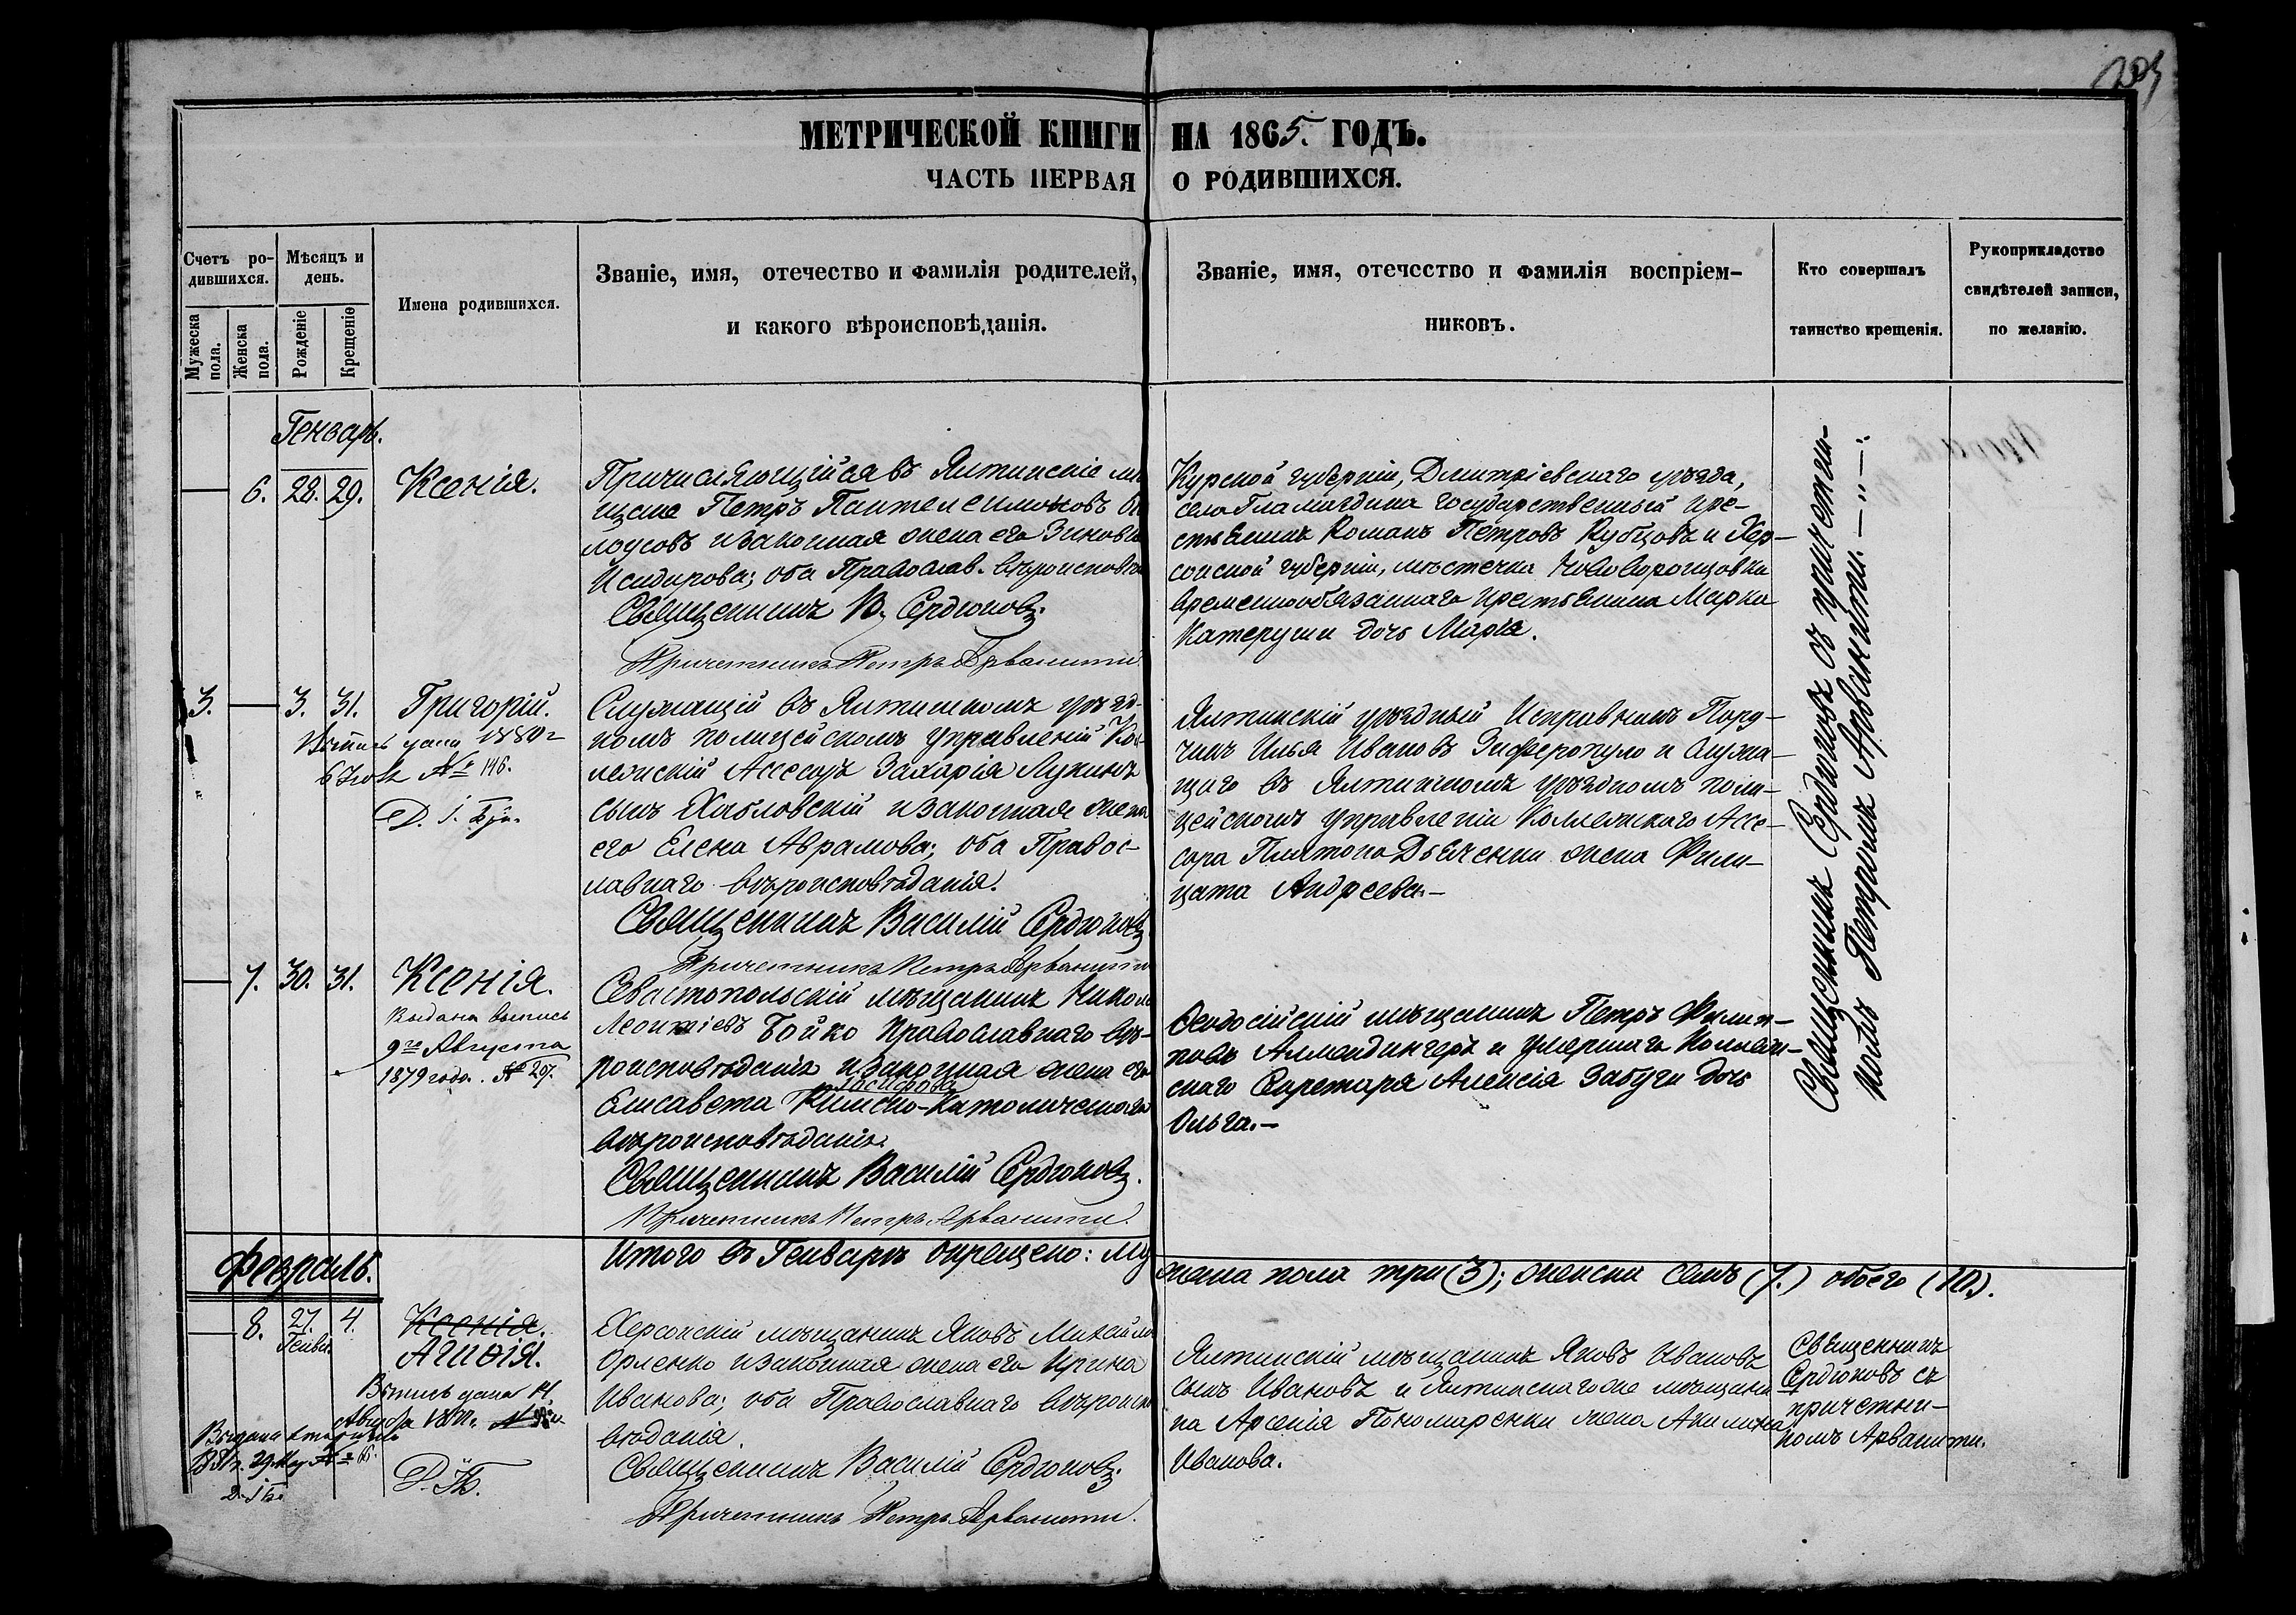 МЕТРИЧЕСКОЙ КНИГИ НА 1865. ГОДЪ.
ЧАСТЬ ПЕРВАЯ О РОДИВШИХСЯ.
Счетъ ро-
дившихся.
Мужеска
пола.
Женска
пола.
Мѣсяцъ и
день.
Рожденіе
Крещеніе
Имена родившихся.
Званіе, имя, отечество и фамилія родителей,
и какого вѣроисповѣданія.
Званіе, имя, отечество и фамилія воспріем-
никовъ.
Кто совершалъ
таинство крещенія.
Рукоприкладство
свидѣтелей записи,
по желанію.
Генварь.
6. 28. 29. Ксенія.
Причисляющійся въ Ялтинскіе
щане Петръ Пантелеимоновъ
лоусовъ изаконная жена его Зиновія
Исидирова; оба Православ. вѣроисповѣ
Священникъ В. Сердюковъ.
Причетникъ Петръ Арванити
Курской губерніи, Дмитріевскаго уѣзда,
села государственный кре-
стьянинъ Романъ Петровъ Рубцовъ и Хер-
сонской губерніи, мѣстечка Нововоронцовки
временнообязаннаго крестьянина Марка
Катеруши дочь Марія.
Священникъ Сердюковъ съ причетни-
комъ Петромъ Арванити. — „ —
3. — 3. 31. Григорій.
Выпись дана 1880 г
6 Іюля № 146.
Служащій въ Ялтинскомъ уѣзд-
номъ полицейскомъ управленіи Кол-
лежскій Ассесоръ Захарія Лукинъ
сынъ Хабловскій изаконная жена
его Елена Аврамова; оба Правос-
лавнаго вѣроисповѣданія.
Священникъ Василій Сердюковъ
Причетникъ Петръ Арванити
Ялтинскій уѣздный Исправникъ Пору-
чикъ Илья Ивановъ Зиферопуло и служа-
щаго въ Ялтинскомъ уѣздномъ поли-
цейскомъ управленіи Коллежскаго Ассе-
сора Платона Дьяченки жена Фили-
цата Андреева.—
— 7. 30. 31. Ксенія.
Выдана выпись
9го Августа
1879 года. № 207.
Севастопольскій мѣщанинъ Никола
Леонтіевъ Бойко православнаго вѣ-
роисповѣданія изаконная жена его
Іосифова
Елисавета Римско-Католическаго
вѣроисповѣданія.
Священникъ Василій Сердюковъ.
Причетникъ Петръ Арванити.
Ѳеодосійскій мѣщанинъ Петръ Филип-
повъ Алмендингеръ и умершаго Коллеж-
скаго Секретаря Алексія Забуги дочь
Ольга.—
Итого въ Генварѣ окрещено: мужеска пола три (3); женска семь (7.) обоего (10).
Февраль.
— 8. 27. 4. Ксенія.
Генвар.
Агнія.
Выпись дана 14
Августа
Выдана вторично
29 Мая
Херсонскій мѣщанинъ Яковъ Михайло
Орленко изаконная жена его Ирина
Иванова; оба Православнаго вѣроиспо
вѣданія.
Священникъ Василій Сердюковъ.
Причетникъ Петръ Арванити.
Ялтинскій мѣщанинъ Яковъ Ивановъ
сынъ Ивановъ и Ялтинскагоже мѣщани
на Арсенія Пономаренки жена Акилина
Иванова.
Священникъ
Сердюковъ съ
причетни-
комъ Арванити.